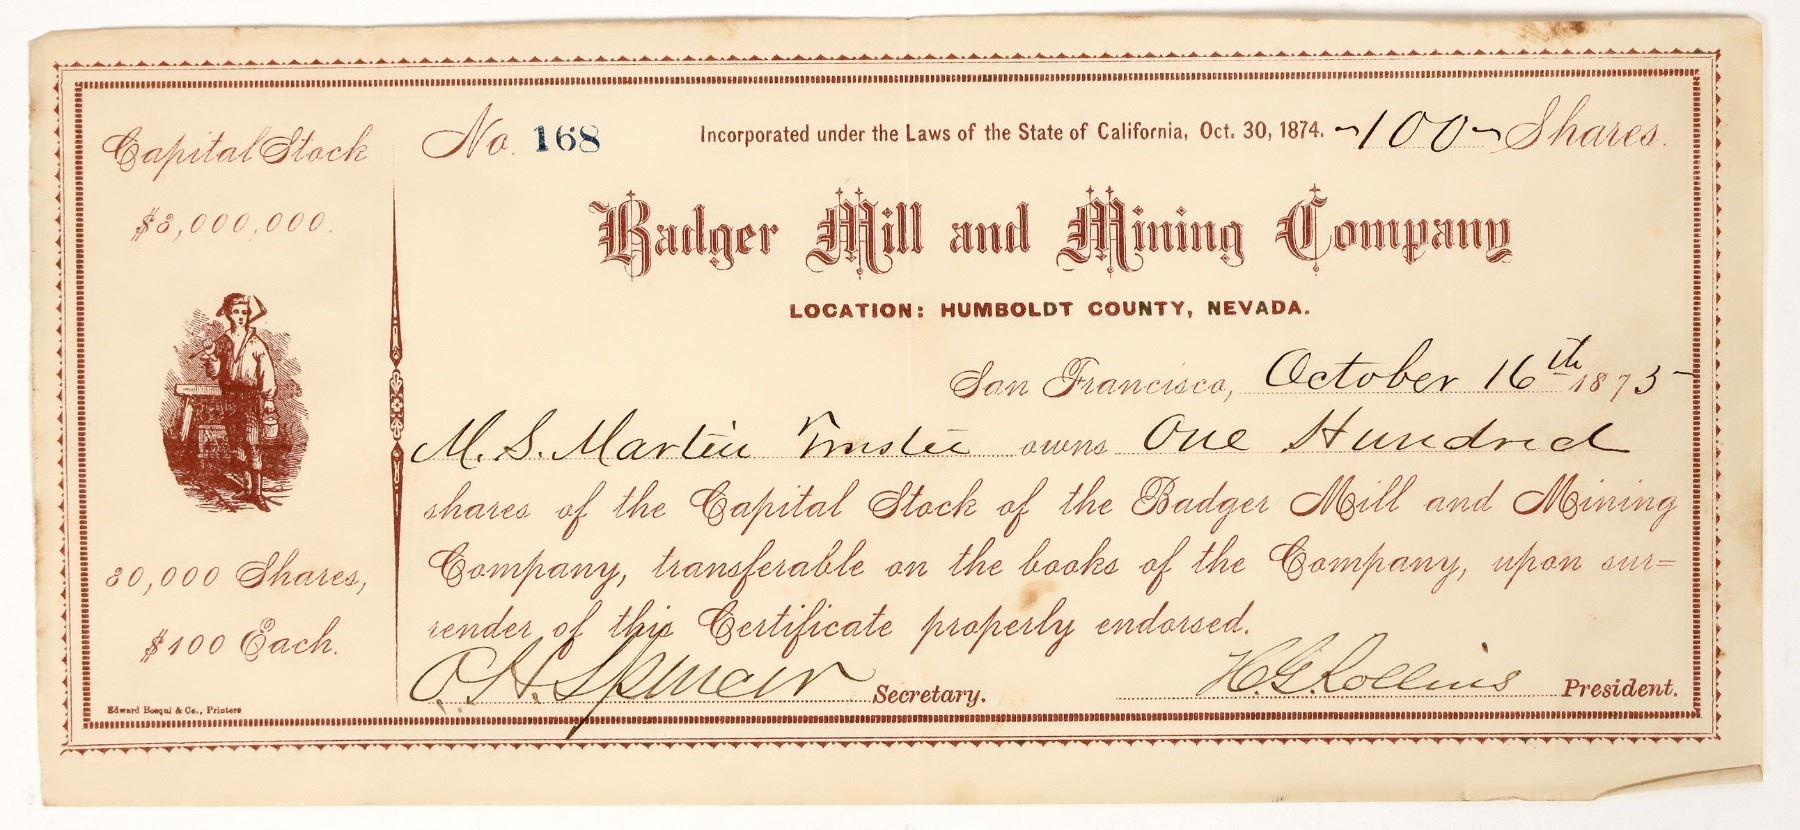 Capital Stock
$3,000,000.
30,000 Shares,
$100 Each.
Edward Bosqui & Co., Printers
No. 168
Incorporated under the Laws of the State of California, Oct. 30, 1874.
~100~ Shares.
Badger Mill and Mining Company
LOCATION: HUMBOLDT COUNTY, NEVADA.
San Francisco, October 16th 1875
M. S. Martin Trustee owns One Hundred
shares of the Capital Stock of the Badger Mill and Mining
Company, transferable on the books of the Company, upon sur=
render of this Certificate properly endorsed.
C. H. Spencer Secretary.
H. G. Rollins President.